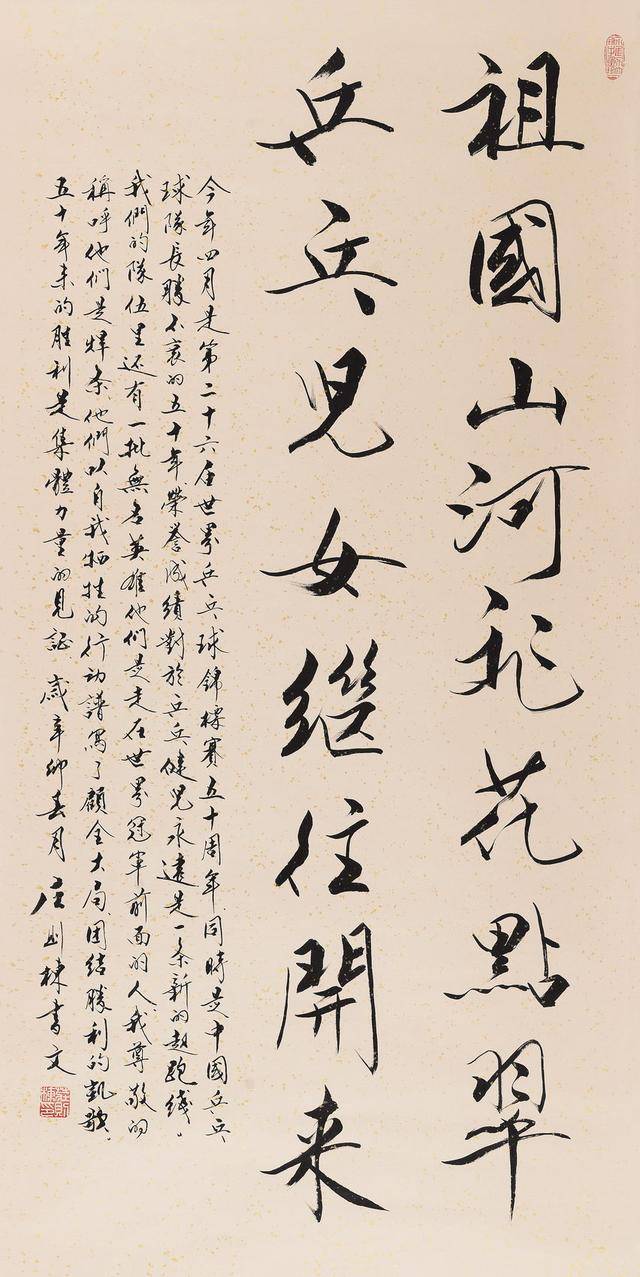 祖國山河飛花點翠
乒乓兒女繼往開来
今年四月是第二十六届世界乒乓球錦標賽五十周年同時是中國乒乓
球隊長勝不衰的五十年榮譽成績對於乒乓健兒永遠是一条新的起跑线。
我們的隊伍里还有一批無名英雄他們是走在世界冠軍前面的人我尊敬的
稱呼他們是輝条他們以自我牺牲的行动譜寫了顧全大局團结勝利的凱歌。
五十年来的胜利是集體力量的見証 歲辛卯春月 庄则棟書文